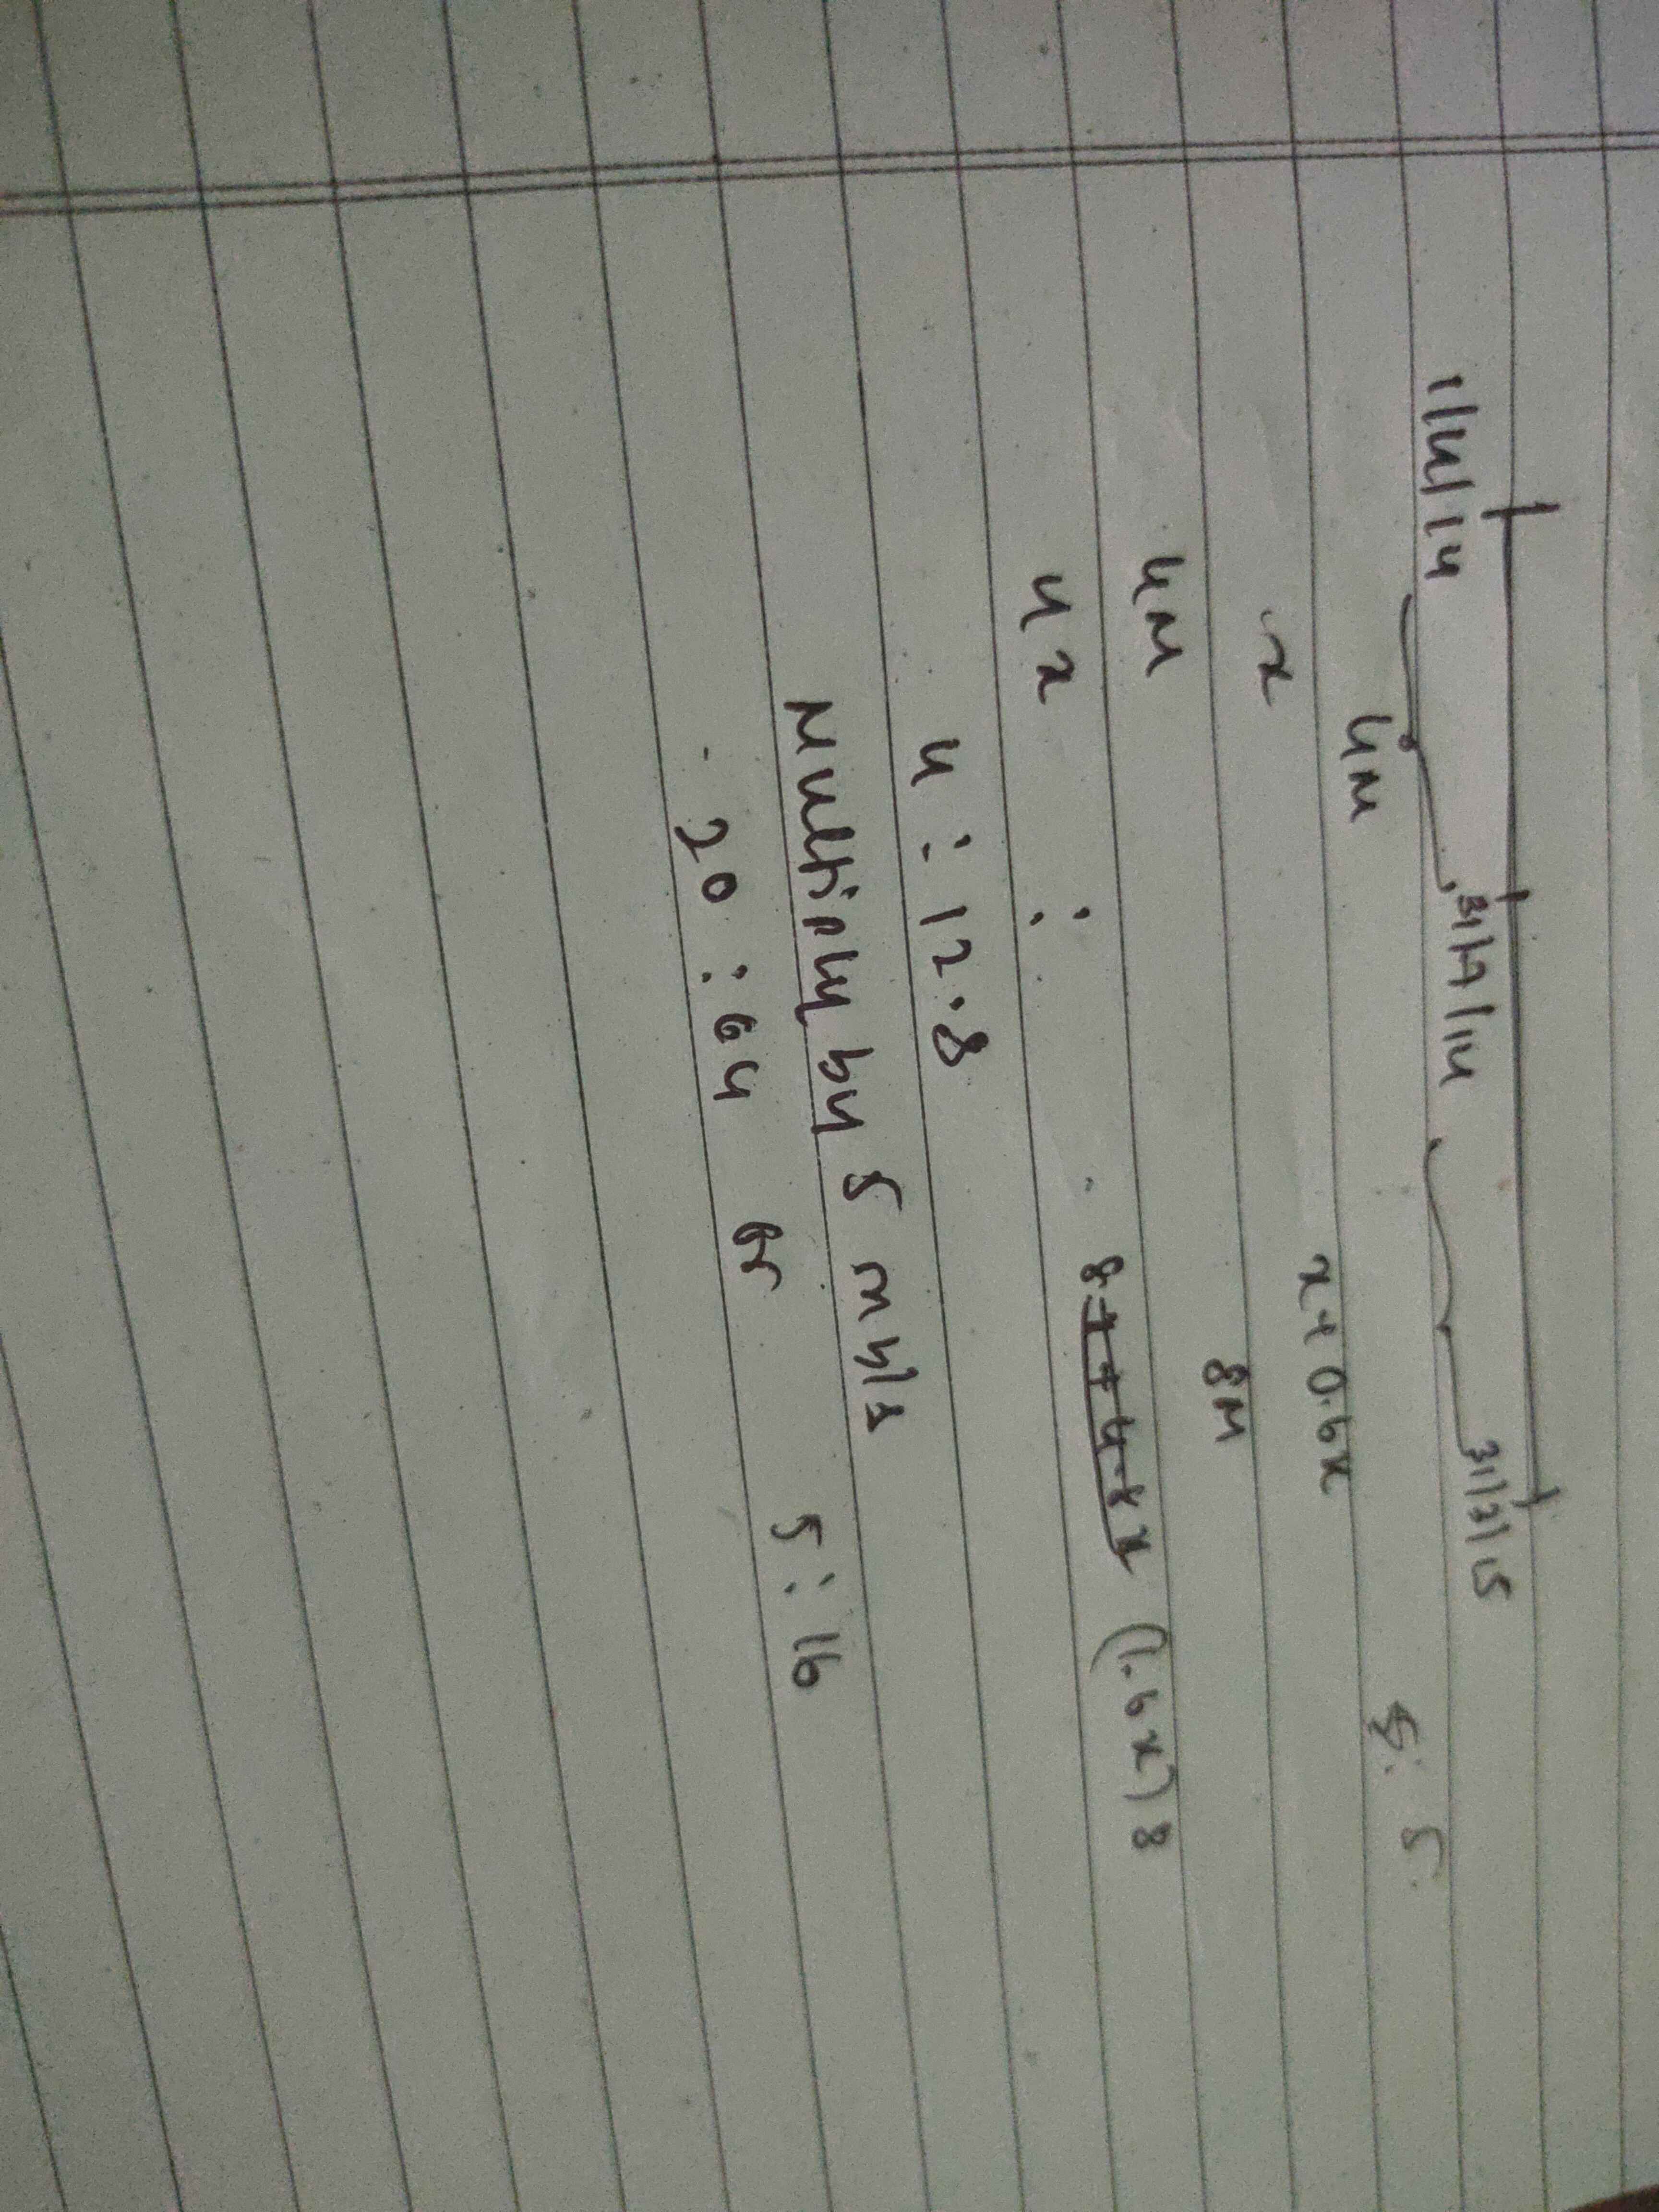 1/4/14 31/7/14 31/3/15
4M 5
x x+0.6x
4M 8M
4x : (1.6x)8
4 : 12.8
Multiply by 5
20 : 64 or 5 : 16